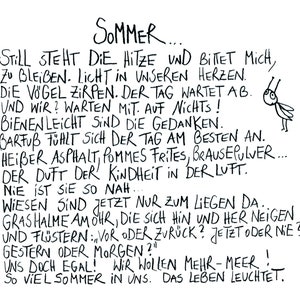 SOMMER...
STILL STEHT DIE HITZE UND BITTET MICH,
ZU BLEIBEN. LICHT IN UNSEREN HERZEN.
DIE VÖGEL ZIRPEN. DER TAG WARTET AB.
UND WIR? WARTEN MIT. AUF NICHTS!
BIENENLEICHT SIND DIE GEDANKEN.
BARFUß FÜHLT SICH DER TAG AM BESTEN AN.
HEIßER ASPHALT, POMMES FRITES, BRAUSEPULVER...
DER DUFT DER KINDHEIT IN DER LUFT.
NIE IST SIE SO NAH...
WIESEN SIND JETZT NUR ZUM LIEGEN DA.
GRASHALME AM OHR, DIE SICH HIN UND HER NEIGEN
UND FLÜSTERN: „VOR ODER ZURÜCK? JETZT ODER NIE?
GESTERN ODER MORGEN?"
UNS DOCH EGAL! WIR WOLLEN MEHR-MEER!
SO VIEL SOMMER IN UNS. DAS LEBEN LEUCHTET.